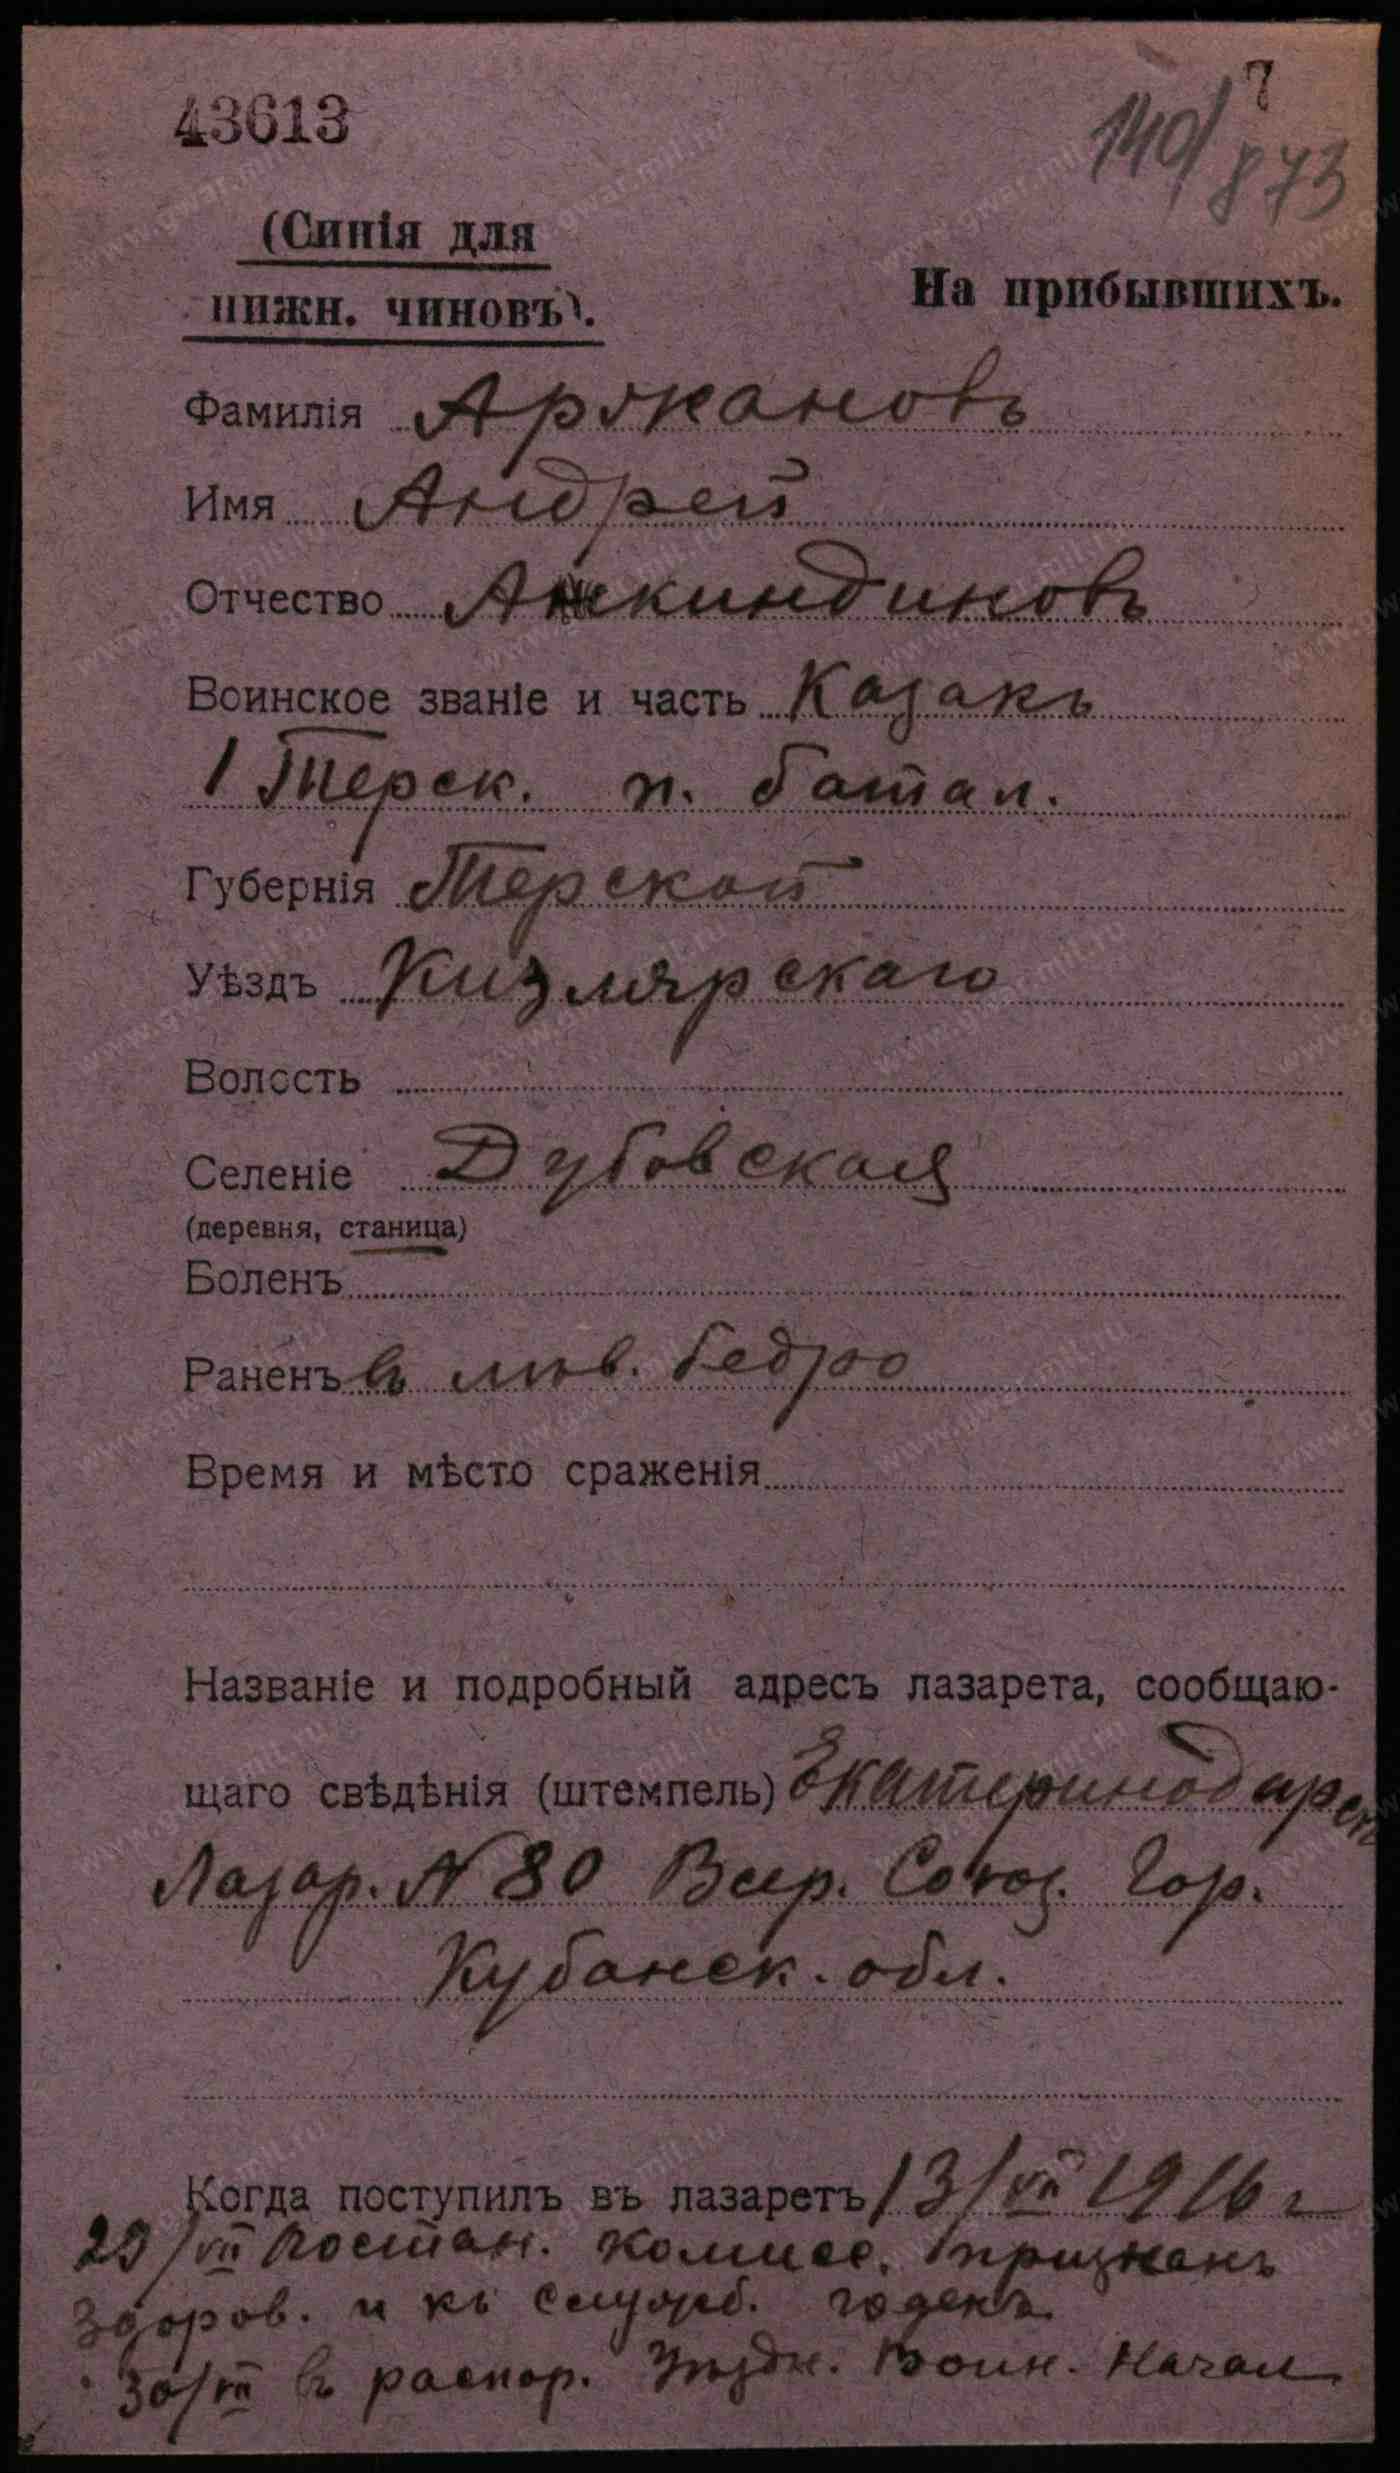 43613
7
140/873
(Синія для
нижн. чиновъ).
На прибывшихъ.
Фамилія Аржановъ
Имя Андрей
Отчество Акиндиновъ
Воинское званіе и часть Казакъ
1 Терск. п. батал.
Губернія Терской
Уѣздъ Кизлярскаго
Волость
Селеніе Дубовская
(деревня, станица)
Боленъ
Раненъ въ лѣв. бедро
Время и мѣсто сраженія
Названіе и подробный адресъ лазарета, сообщаю-
щаго свѣдѣнія (штемпель) Екатеринодарск
Лазар. № 80 Всер. Союз. Гор.
Кубанск. обл.
Когда поступилъ въ лазаретъ 13/VII 1916 г
29/VII постан. комисс. признанъ
здоров. и къ служб. годенъ
30/VII въ распор. Уѣздн. Воин. Начал